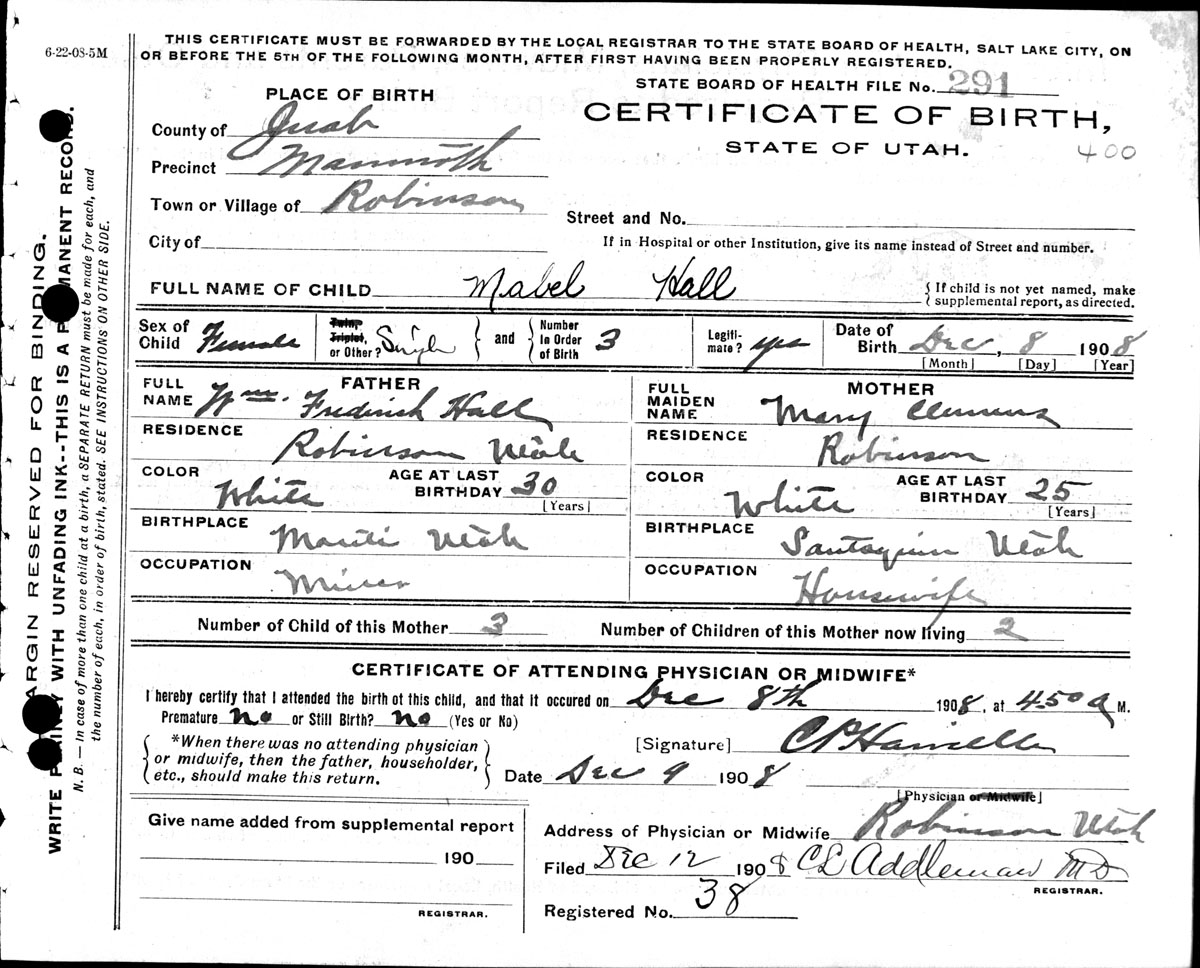 6-22-08-5M
THIS CERTIFICATE MUST BE FORWARDED BY THE LOCAL REGISTRAR TO THE STATE BOARD OF HEALTH, SALT LAKE CITY, ON
OR BEFORE THE 5TH OF THE FOLLOWING MONTH, AFTER FIRST HAVING BEEN PROPERLY REGISTERED.
STATE BOARD OF HEALTH FILE No. 291
PLACE OF BIRTH
CERTIFICATE OF BIRTH,
STATE OF UTAH.
400
County of Juab
Precinct Mammoth
Town or Village of Robinson
Street and No.
City of
If in Hospital or other Institution, give its name instead of Street and number.
FULL NAME OF CHILD Mabel Hall
{ If child is not yet named, make
supplemental report, as directed.
Sex of Child Female
Twin, Triplet, or Other? Single } and { Number in Order of Birth 3
Legitimate? yes
Date of Birth Dec, 8 1908
[Month] [Day] [Year]
FATHER
FULL NAME Wm. Fredrick Hall
RESIDENCE Robinson Utah
COLOR White
AGE AT LAST BIRTHDAY 30
[Years]
BIRTHPLACE Manti Utah
OCCUPATION Miner
MOTHER
FULL MAIDEN NAME Mary Clemens
RESIDENCE Robinson
COLOR White
AGE AT LAST BIRTHDAY 25
[Years]
BIRTHPLACE Santaquin Utah
OCCUPATION Housewife
Number of Child of this Mother 3
Number of Children of this Mother now living 2
CERTIFICATE OF ATTENDING PHYSICIAN OR MIDWIFE*
I hereby certify that I attended the birth of this child, and that it occured on Dec 8th 1908, at 4.50 a M.
Premature no or Still Birth? no (Yes or No)
{ *When there was no attending physician
or midwife, then the father, householder,
etc., should make this return. }
[Signature]
Date Dec 9 1908
[Physician or Midwife]
Address of Physician or Midwife Robinson Utah
Filed Dec 12 1908 CL Addleman MD
REGISTRAR.
Registered No. 38
Give name added from supplemental report
190
REGISTRAR.
MARGIN RESERVED FOR BINDING.
WRITE PLAINLY WITH UNFADING INK--THIS IS A PERMANENT RECORD.
N. B. — In case of more than one child at a birth, a SEPARATE RETURN must be made for each, and
the number of each, in order of birth, stated. SEE INSTRUCTIONS ON OTHER SIDE.